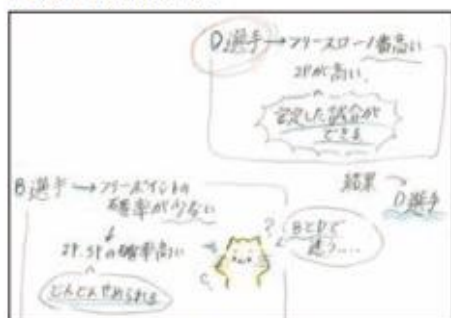 D選手→フリースロー1番高い
2Pが高い、
安定した試合が
できる
結果
D選手
B選手→フリーポイントの
確率が少ない
2P.3Pの確率高い
どんどんせめられる
?
BとDで
迷う....